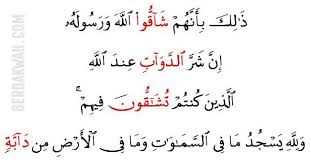 ذَٰلِكَ بِأَنَّهُمْ شَاقُّوا۟ ٱللَّهَ وَرَسُولَهُۥ
إِنَّ شَرَّ ٱلدَّوَآبِّ عِندَ ٱللَّهِ
ٱلَّذِينَ كُنتُمْ تُشَٰٓقُّونَ فِيهِمْ ۚ
وَلِلَّهِ يَسْجُدُ مَا فِى ٱلسَّمَٰوَٰتِ وَمَا فِى ٱلْأَرْضِ مِن دَآبَّةٍ
BERDAKWAH.COM